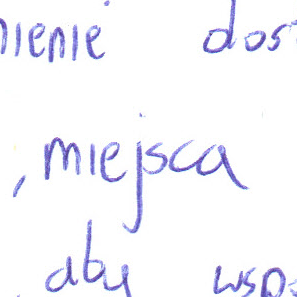 nienie dos
, miejsca
, aby wsp